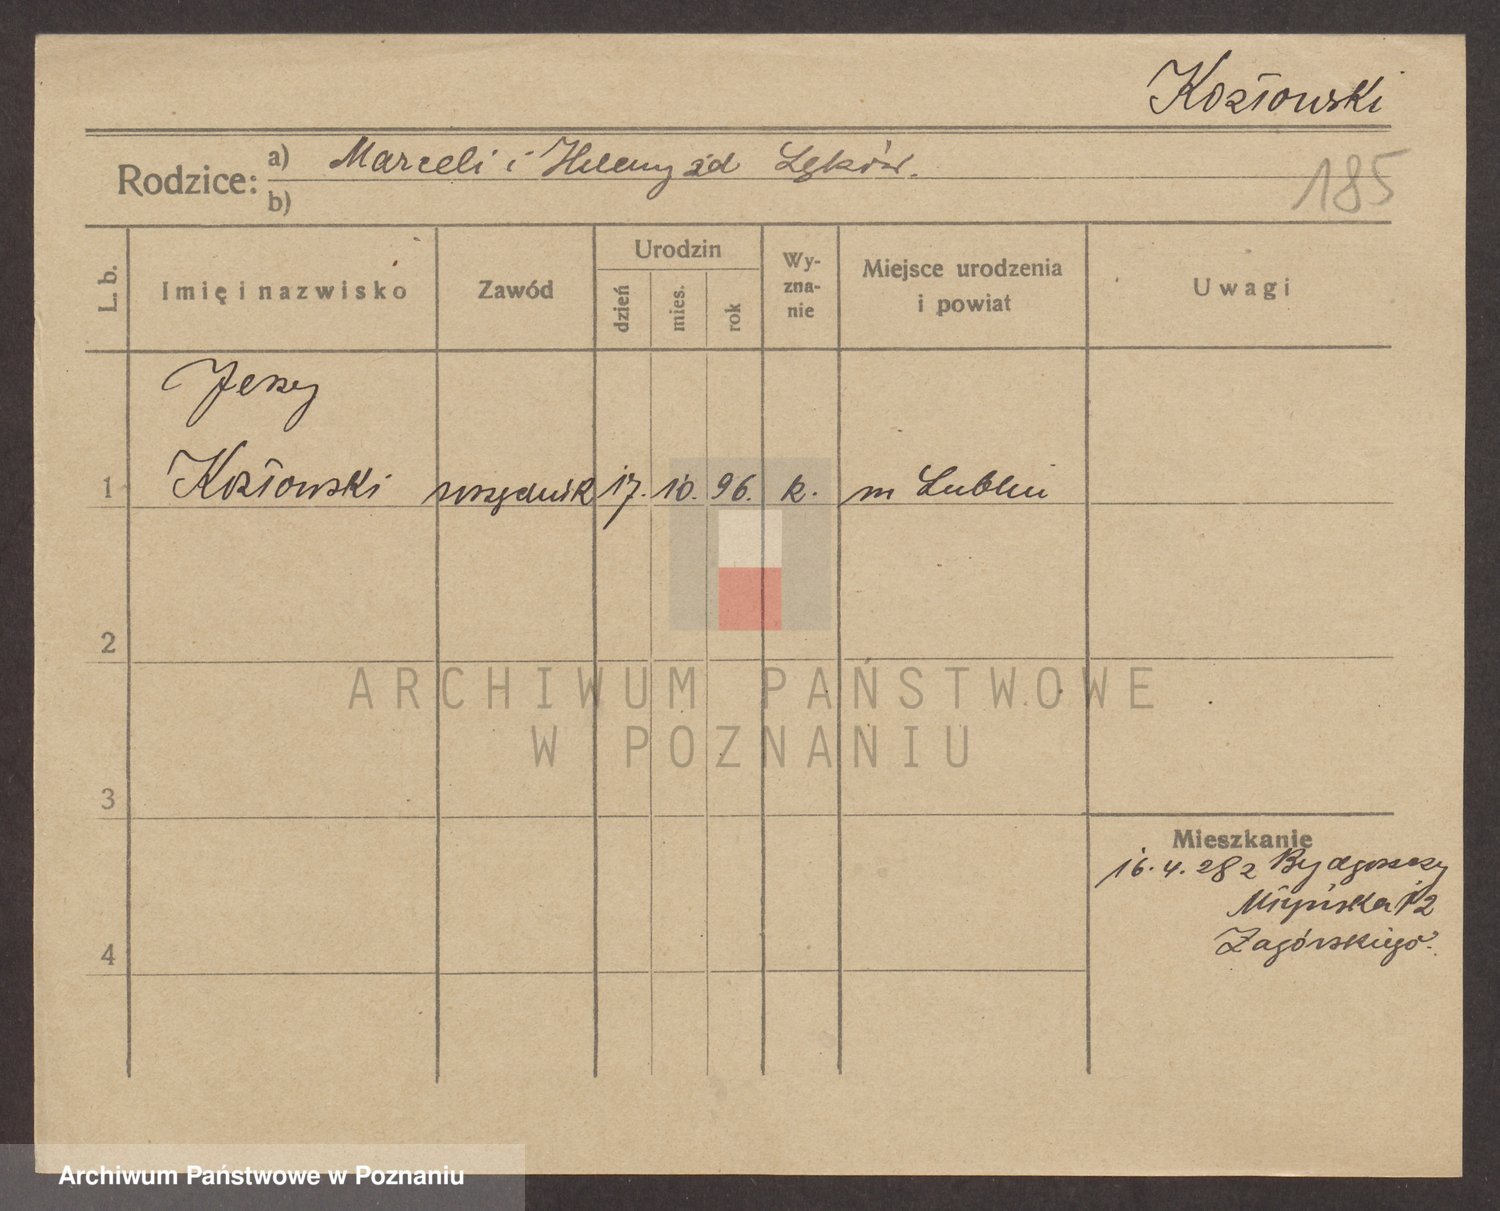 Kozłowski
Rodzice: a) Marceli i Heleny zd Lęków.
b)
185
L. b.
Imię i nazwisko
Zawód
Urodzin
dzień
mies.
rok
Wy-
zna-
nie
Miejsce urodzenia
i powiat
Uwagi
Jerzy
1 Kozłowski urzędnik 17. 10. 96. k. m Lublin
2
3
4
Mieszkanie
16.4.28 z Bydgoszczy
Młyńska 12
Zagórskiego.
ARCHIWUM PAŃSTWOWE
W POZNANIU
Archiwum Państwowe w Poznaniu